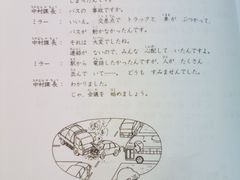 中村課長：バスの事故ですか。
ミラー：いいえ。交差点で トラックと 車が ぶつかって、
バスが 動かなかったんです。
中村課長：それは 大変でしたね。
連絡が ないので、みんな 心配して いたんですよ。
ミラー：駅から 電話したかったんですが、人が たくさん
並んで いて……。 どうも すみませんでした。
中村課長：わかりました。
じゃ、会議を 始めましょう。